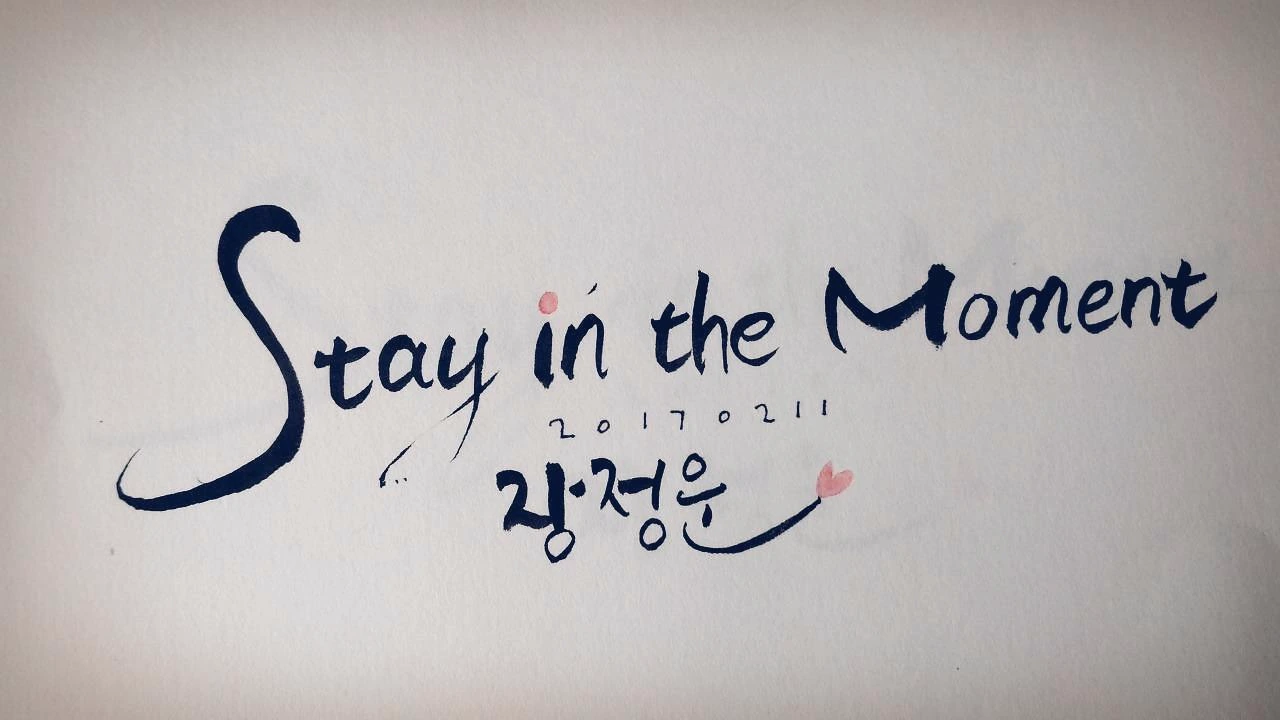 Stay in the Moment
20170211
장정운